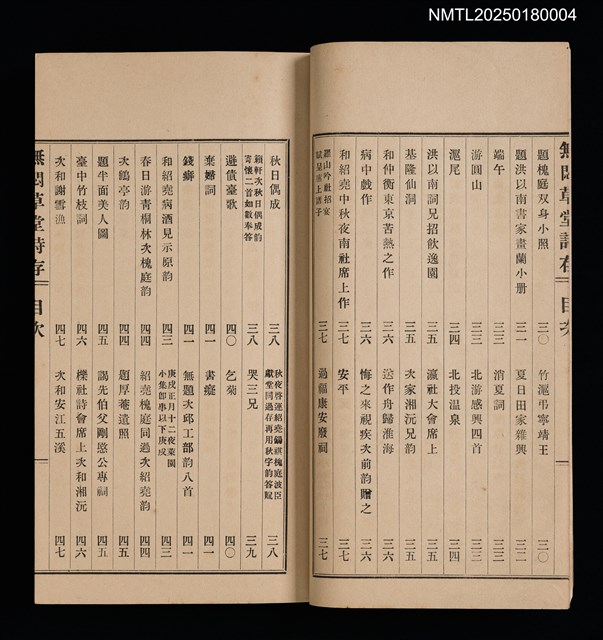 NMTL20250180004
無悶草堂詩存 目次
題槐庭双身小照 三〇 竹滬弔寧靖王 三〇
題洪以南書家畫蘭小册 三一 夏日田家雜興 三二
端午 三三 消夏詞 三三
游圓山 三三 北游感興四首 三三
滬尾 三四 北投温泉 三四
洪以南詞兄招飲逸園 三五 瀛社大會席上 三五
基隆仙洞 三五 次家湘沅兄韵 三五
和仲衡東京苦熱之作 三六 送作舟歸淮海 三六
病中戲作 三六 悔之來視疾次前韵贈之 三六
和紹堯中秋夜南社席上作 三七 安平 三七
羅山吟社招宴賦呈席上諸子 三七 過福康安廢祠 三七
秋日偶成 三八 秋夜啓運紹堯錫祺槐庭波臣獻堂同過存再用秋字韵答賦 三八
籟軒次秋日偶成韵寄懷二首如數奉答 三八 哭三兄 三九
避債臺歌 四〇 乞菊 四〇
棄婦詞 四一 書癡 四一
錢癖 四一 無題次邱工部韵八首 四一
和紹堯病酒見示原韵 四三 庚戌正月十二夜萊園小集卽事以下庚戌 四三
春日游青桐林次槐庭韵 四四 紹堯槐庭同過次紹堯韵 四四
次鶴亭韵 四四 題厚菴遺照 四五
題半面美人圖 四五 謁先伯父剛愍公專祠 四五
臺中竹枝詞 四六 櫟社詩會席上次和湘沅 四六
次和謝雪漁 四七 次和安江五溪 四七
無悶草堂詩存 目次